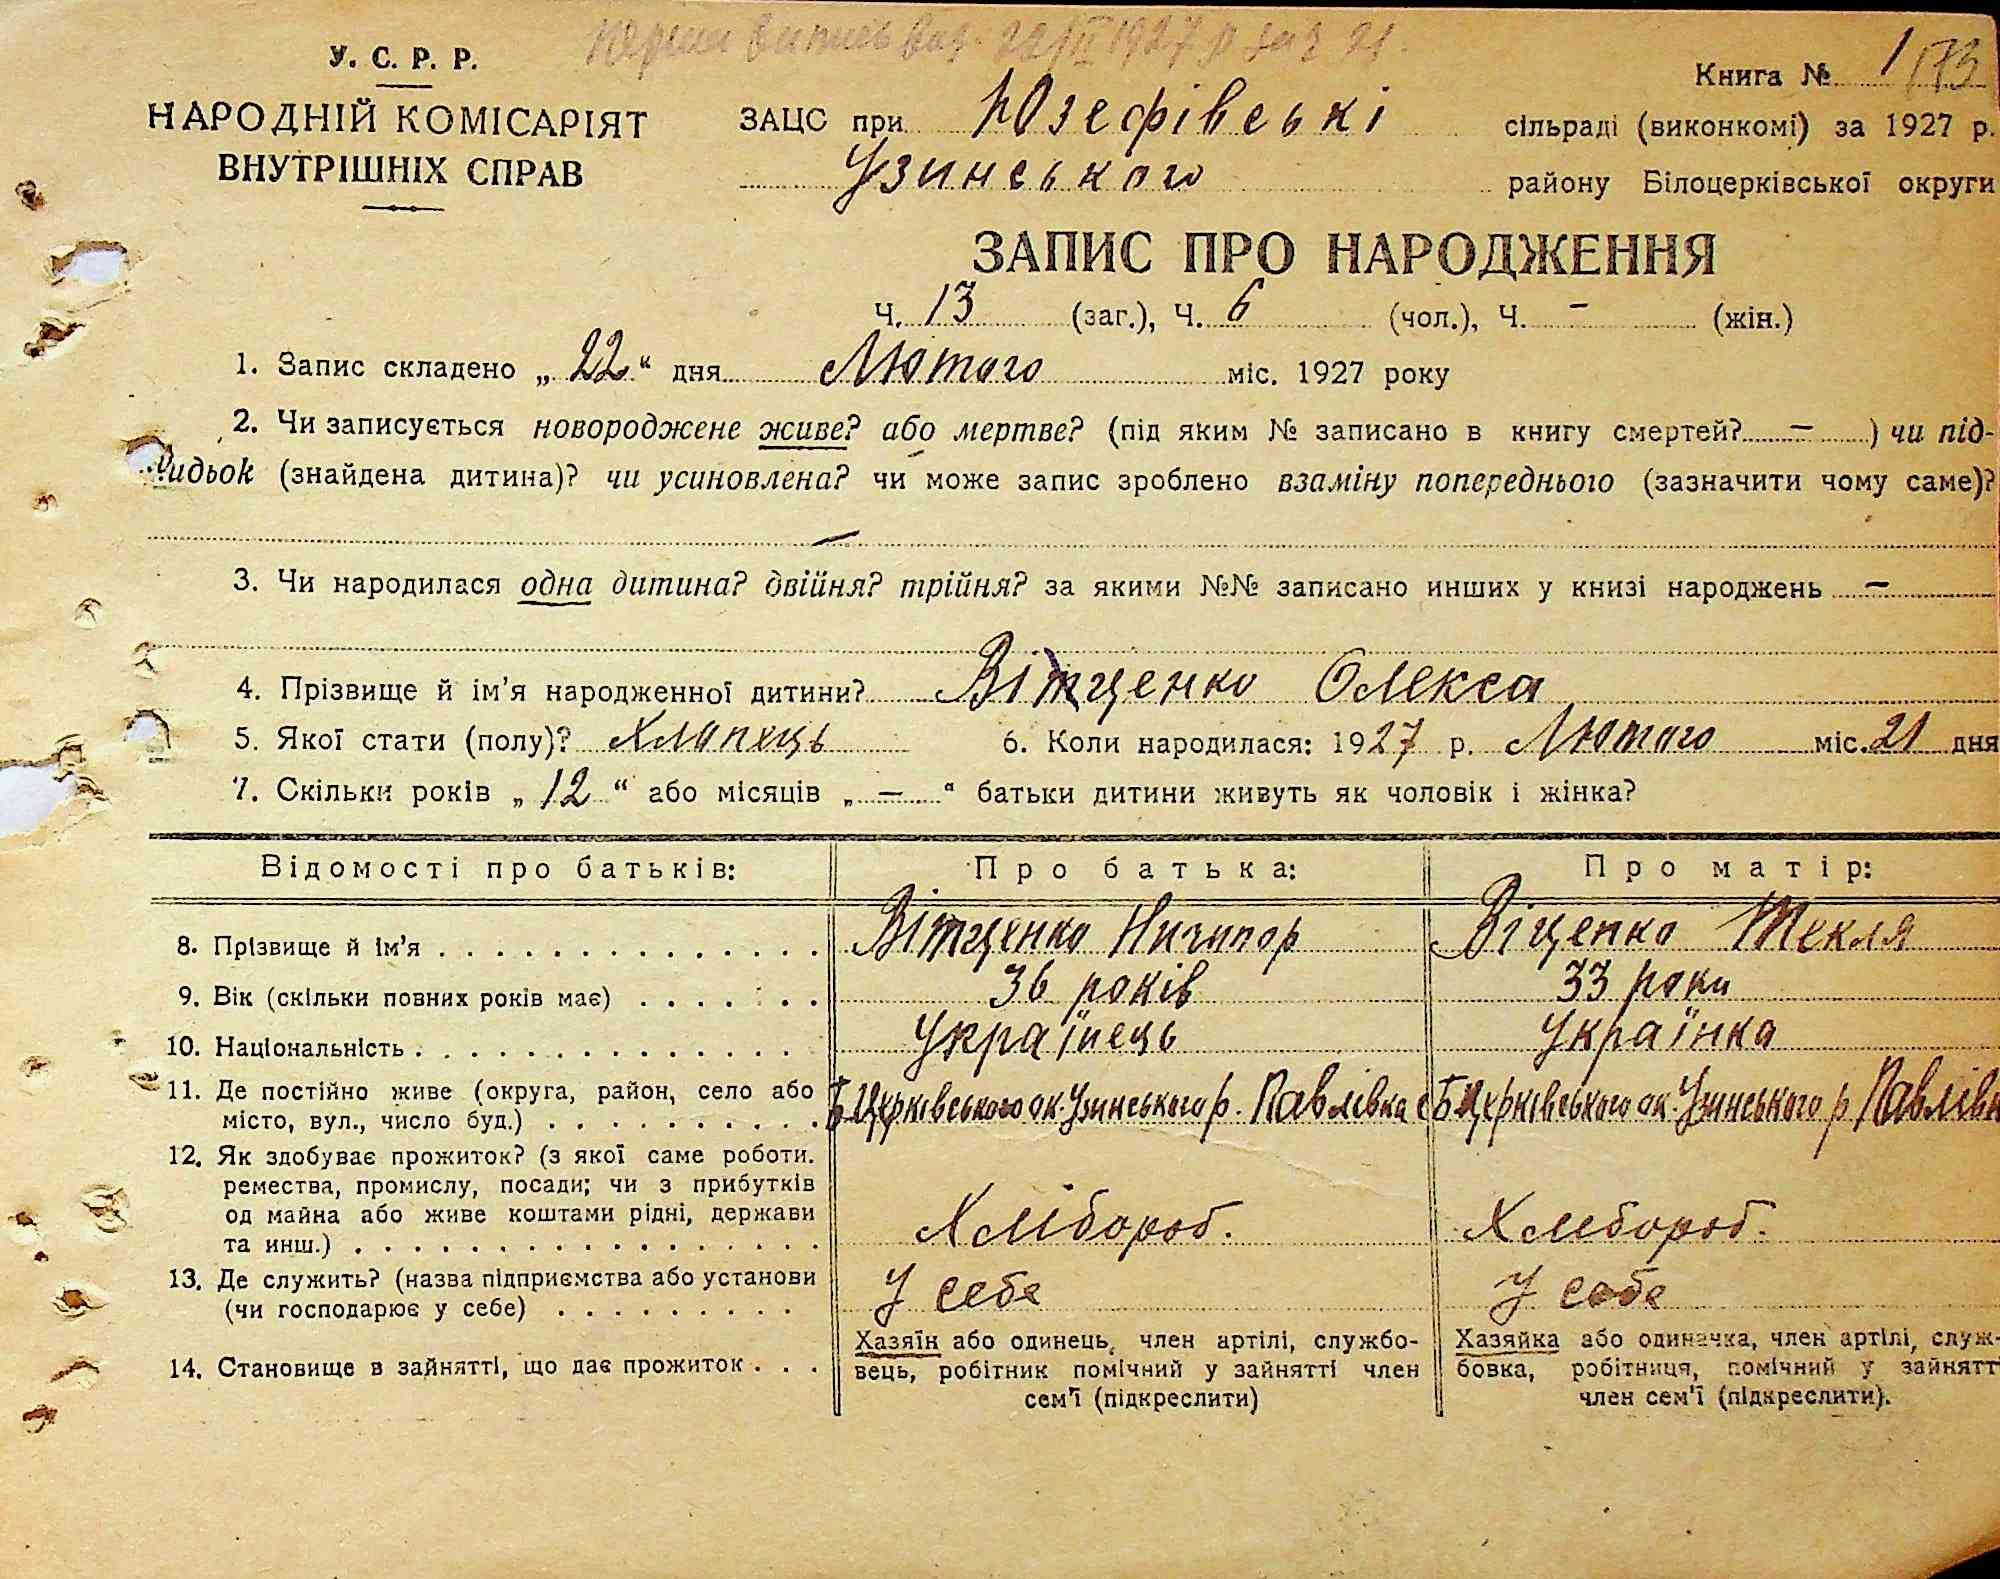 Перший випись вид. 22/II 1927 р за ч 21.
У. С. Р. Р.
НАРОДНІЙ КОМІСАРІЯТ
ВНУТРІШНІХ СПРАВ
Книга № 1 173
ЗАЦС при Юзефівські сільраді (виконкомі) за 1927 р.
Узинського району Білоцерківської округи
ЗАПИС ПРО НАРОДЖЕННЯ
Ч. 13 (заг.), Ч. 6 (чол.), Ч. – (жін.)
1. Запис складено „ 22 “ дня Лютого міс. 1927 року
2. Чи записується новороджене живе? або мертве? (під яким № записано в книгу смертей? – ) чи під-
кидьок (знайдена дитина)? чи усиновлена? чи може запис зроблено взаміну попереднього (зазначити чому саме)?
–
3. Чи народилася одна дитина? двійня? трійня? за якими №№ записано инших у книзі народжень –
4. Прізвище й ім’я народженної дитини? Вітценко Олекса
5. Якої стати (полу)? Хлопець 6. Коли народилася: 1927 р. Лютого міс. 21 дня
7. Скільки років „ 12 “ або місяців „ – “ батьки дитини живуть як чоловік і жінка?
Відомості про батьків: Про батька: Про матір:
8. Прізвище й ім’я . . . . . . . . . . . . . . Вітценко Ничипор Віценко Текля
9. Вік (скільки повних років має) . . . . . . . 36 років 33 роки
10. Національність . . . . . . . . . . . . . . . Українець Українка
11. Де постійно живе (округа, район, село або
місто, вул., число буд.) . . . . . . . . . . . Б Церківського ок. Узинського р. Павлівка с Б Церківського ок. Узинського р Павлівк
12. Як здобуває прожиток? (з якої саме роботи.
ремества, промислу, посади; чи з прибутків
од майна або живе коштами рідні, держави
та инш.) . . . . . . . . . . . . . . . . . . Хлібороб. Хлібороб.
13. Де служить? (назва підприємства або установи
(чи господарює у себе) . . . . . . . . . . У себе У себе
14. Становище в зайнятті, що дає прожиток . . .
Хазяїн або одинець, член артілі, службо-
вець, робітник помічний у зайнятті член
сем’ї (підкреслити)
Хазяйка або одиначка, член артілі, служ-
бовка, робітниця, помічний у зайнятті
член сем’ї (підкреслити).